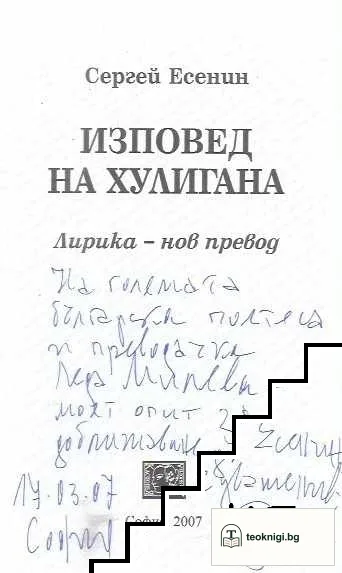 Сергей Есенин
ИЗПОВЕД
НА ХУЛИГАНА
Лирика – нов превод
На голямата
българска поетеса
и преводачка
Леда Милева
моят опит за
доближаване
17.03.07
София
София 2007
teoknigi.bg